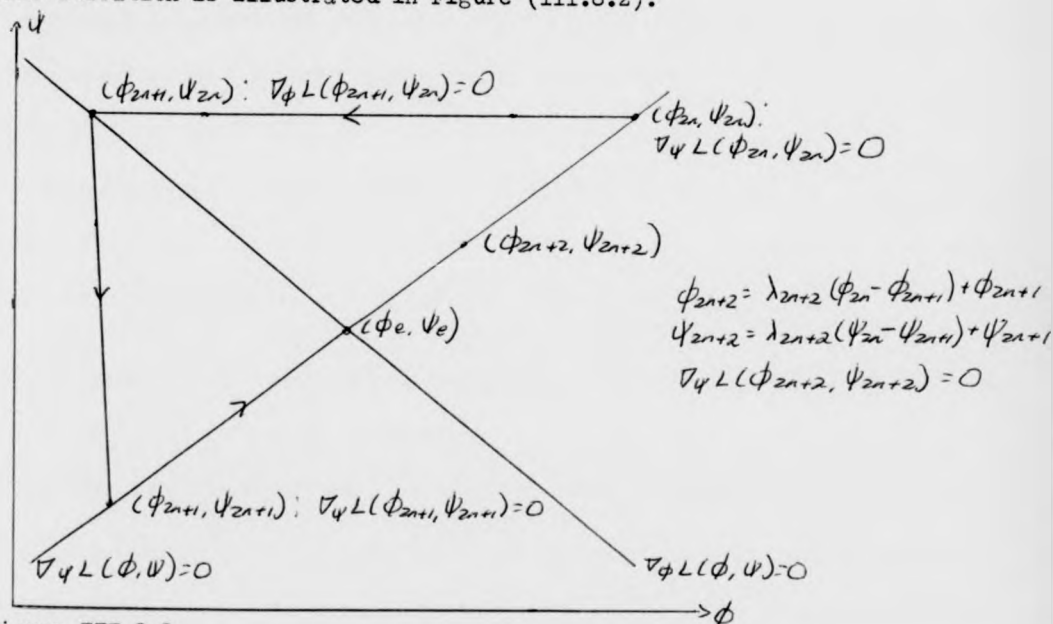 illustrated in Figure (III.6.2).
ψ
(ϕ2n+1, ψ2n): ∇ϕ L(ϕ2n+1, ψ2n)=0
(ϕ2n, ψ2n):
∇ψ L(ϕ2n, ψ2n)=0
(ϕ2n+2, ψ2n+2)
ϕ2n+2 = λ2n+2 (ϕ2n - ϕ2n+1) + ϕ2n+1
ψ2n+2 = λ2n+2 (ψ2n - ψ2n+1) + ψ2n+1
∇ψ L(ϕ2n+2, ψ2n+2) = 0
(ϕe, ψe)
(ϕ2n+1, ψ2n+1): ∇ψ L(ϕ2n+1, ψ2n+1)=0
∇ψ L(ϕ, ψ)=0
∇ϕ L(ϕ, ψ)=0
ϕ